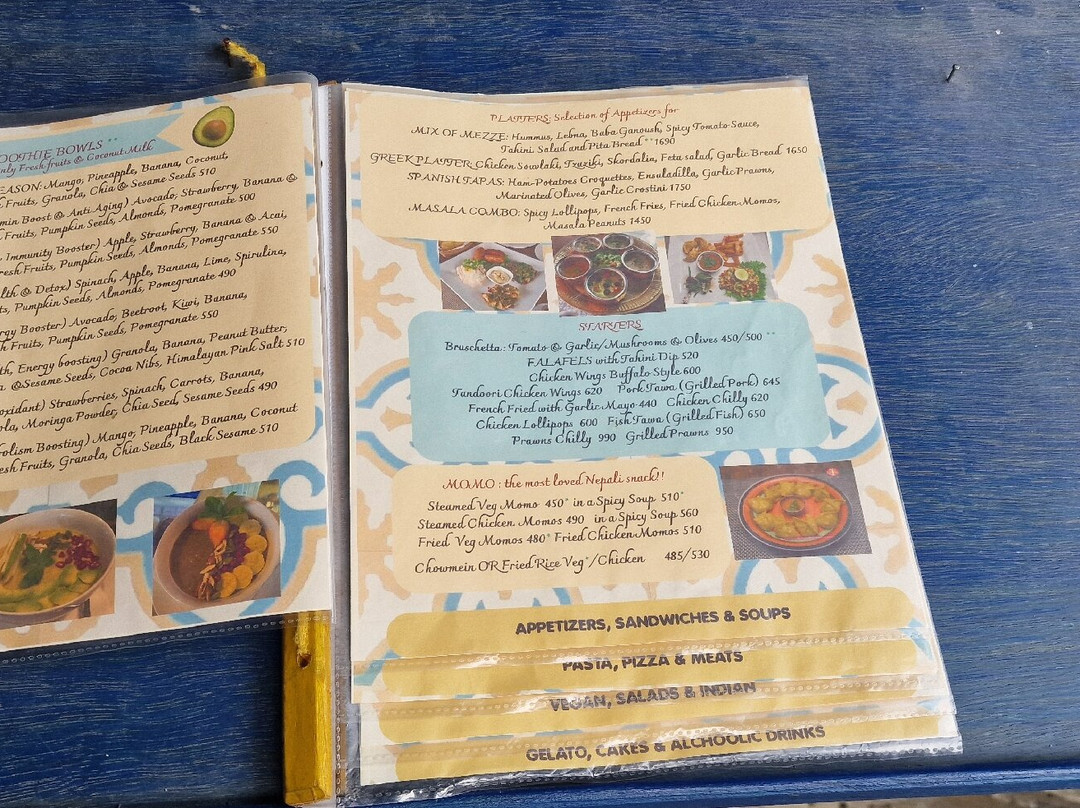 OOTHIE BOWLS **
nly Fresh fruits & Coconut Milk
EASON: Mango, Pineapple, Banana, Coconut,
Fruits, Granola, Chia & Sesame Seeds 510
min Boost & Anti Aging) Avocado, Strawberry, Banana &
Fruits, Pumpkin Seeds, Almonds, Pomegranate 500
Immunity Booster) Apple, Strawberry, Banana & Acai,
resh Fruits, Pumpkin Seeds, Almonds, Pomegranate 550
lth & Detox) Spinach, Apple, Banana, Lime, Spirulina,
ts, Pumpkin Seeds, Almonds, Pomegranate 490
rgy Booster) Avocado, Beetroot, Kiwi, Banana,
h Fruits, Pumpkin Seeds, Pomegranate 550
th, Energy boosting) Granola, Banana, Peanut Butter,
a &Sesame Seeds, Cocoa Nibs, Himalayan Pink Salt 510
oxidant) Strawberries, Spinach, Carrots, Banana,
ola, Moringa Powder, Chia Seed, Sesame Seeds 490
olism Boosting) Mango, Pineapple, Banana, Coconut
esh Fruits, Granola, Chia Seeds, Black Sesame 510
PLATTERS: Selection of Appetizers for
MIX OF MEZZE: Hummus, Lebna, Baba Ganoush, Spicy Tomato Sauce,
Tahini Salad and Pita Bread ** 1690
GREEK PLATTER: Chicken Souvlaki, Tzaziki, Skordalia, Feta salad, Garlic Bread 1650
SPANISH TAPAS: Ham-Potatoes Croquettes, Ensuladilla, Garlic Prawns,
Marinated Olives, Garlic Crostini 1750
MASALA COMBO: Spicy Lollipops, French Fries, Fried Chicken Momos,
Masala Peanuts 1450
STARTERS
Bruschetta: Tomato & Garlic/Mushrooms & Olives 450/500 **
FALAFELS with Tahini Dip 520
Chicken Wings Buffalo Style 600
Tundoori Chicken Wings 620 Pork Tawa (Grilled Pork) 645
French Fried with Garlic Mayo 440 Chicken Chilly 620
Chicken Lollipops 600 Fish Tawa (Grilled Fish) 650
Prawns Chilly 990 Grilled Prawns 950
MOMO : the most loved Nepali snack!!
Steamed Veg Momo 450* in a Spicy Soup 510*
Steamed Chicken Momos 490 in a Spicy Soup 560
Fried Veg Momos 480* Fried Chicken Momos 510
Chowmein OR Fried Rice Veg*/Chicken 485/530
APPETIZERS, SANDWICHES & SOUPS
PASTA, PIZZA & MEATS
VEGAN, SALADS & INDIAN
GELATO, CAKES & ALCHOOLIC DRINKS